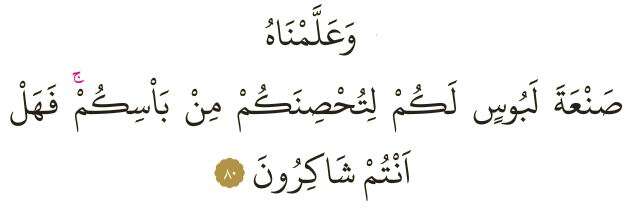 وَعَلَّمْنَاهُ
صَنْعَةَ لَبُوسٍ لَكُمْ لِتُحْصِنَكُمْ مِنْ بَاْسِكُمْۚ فَهَلْ
اَنْتُمْ شَاكِرُونَ ٨٠